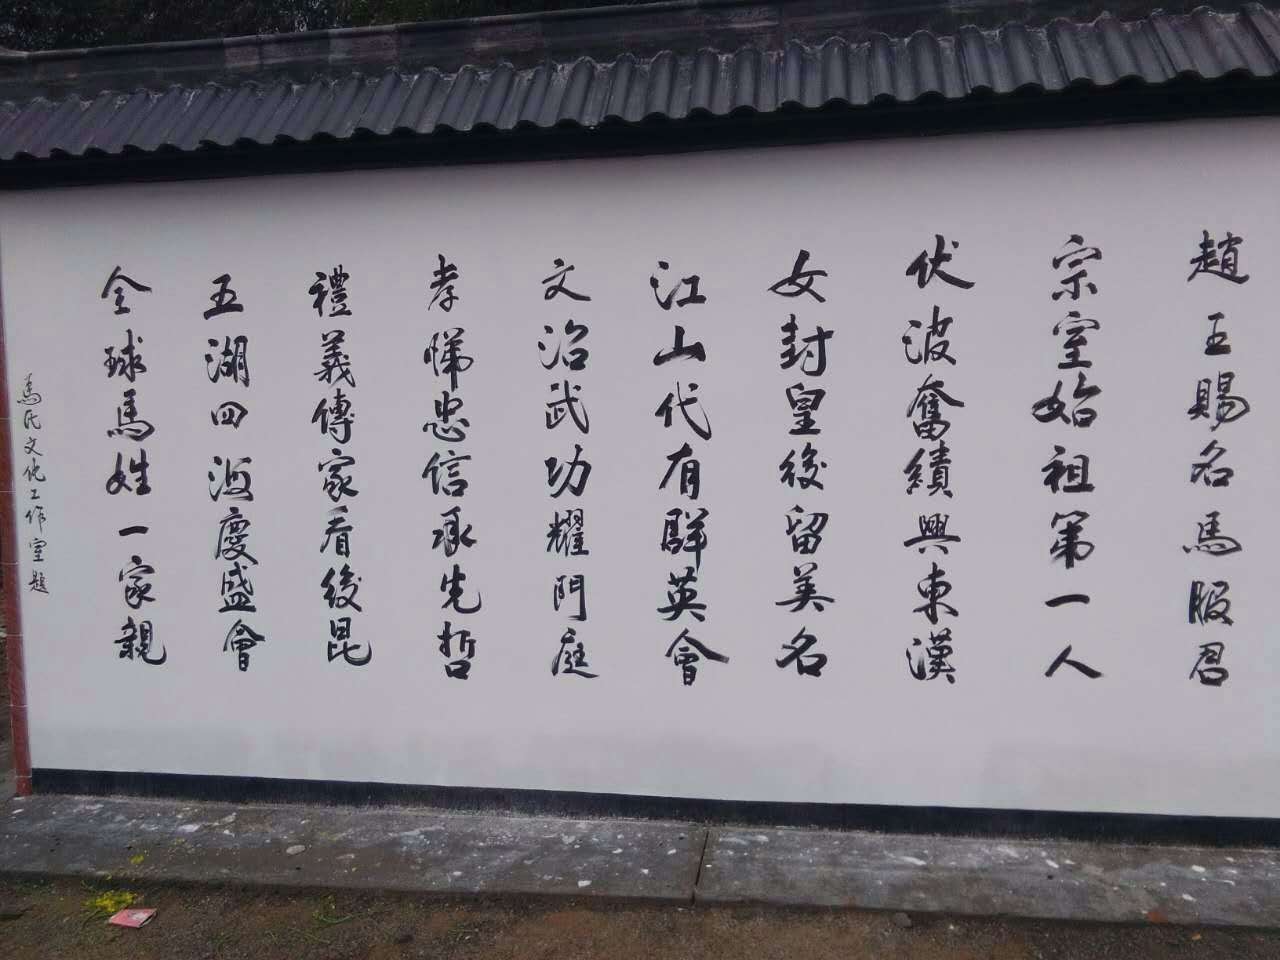 趙王賜名馬服君
宗室始祖第一人
伏波奮績興東漢
女封皇後留美名
江山代有群英會
文治武功耀門庭
孝悌忠信承先哲
禮義傳家看後昆
五湖四海慶盛會
全球馬姓一家親
馬氏文化工作室題